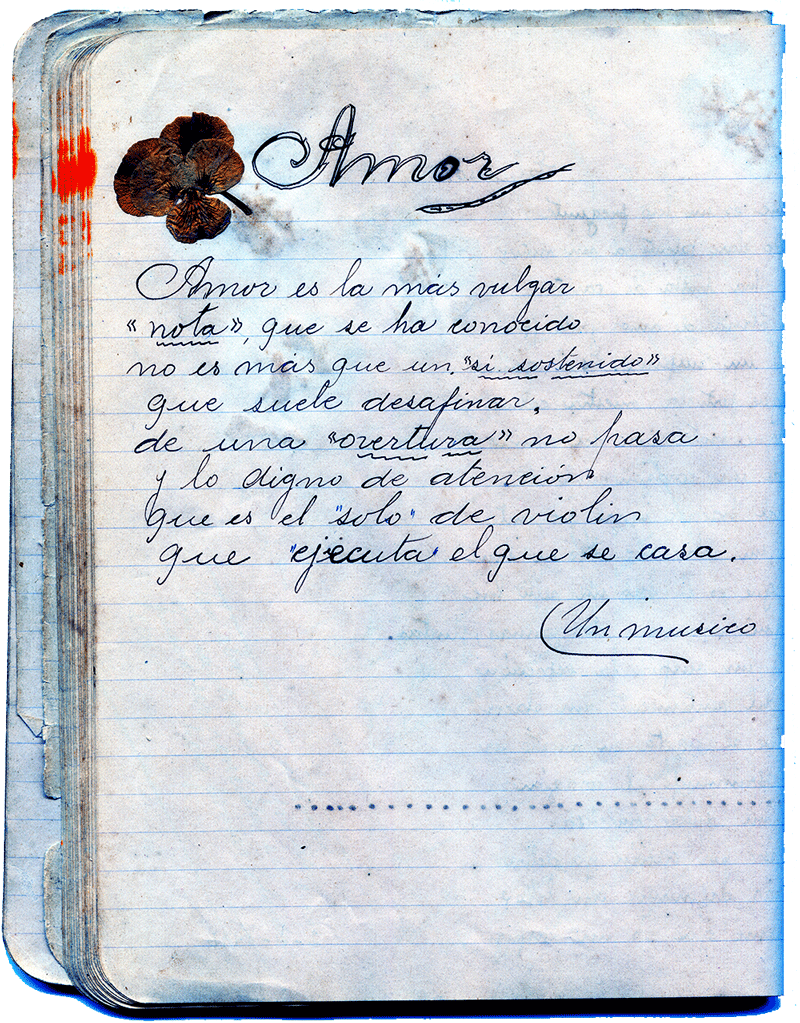 Amor
Amor es la más vulgar
«nota», que se ha conocido
no es más que un "si sostenido»
que suele desafinar,
de una "overtura» no pasa
y lo digno de atención
que es el "solo" de violin
que "ejecuta" el que se casa.
Un musico